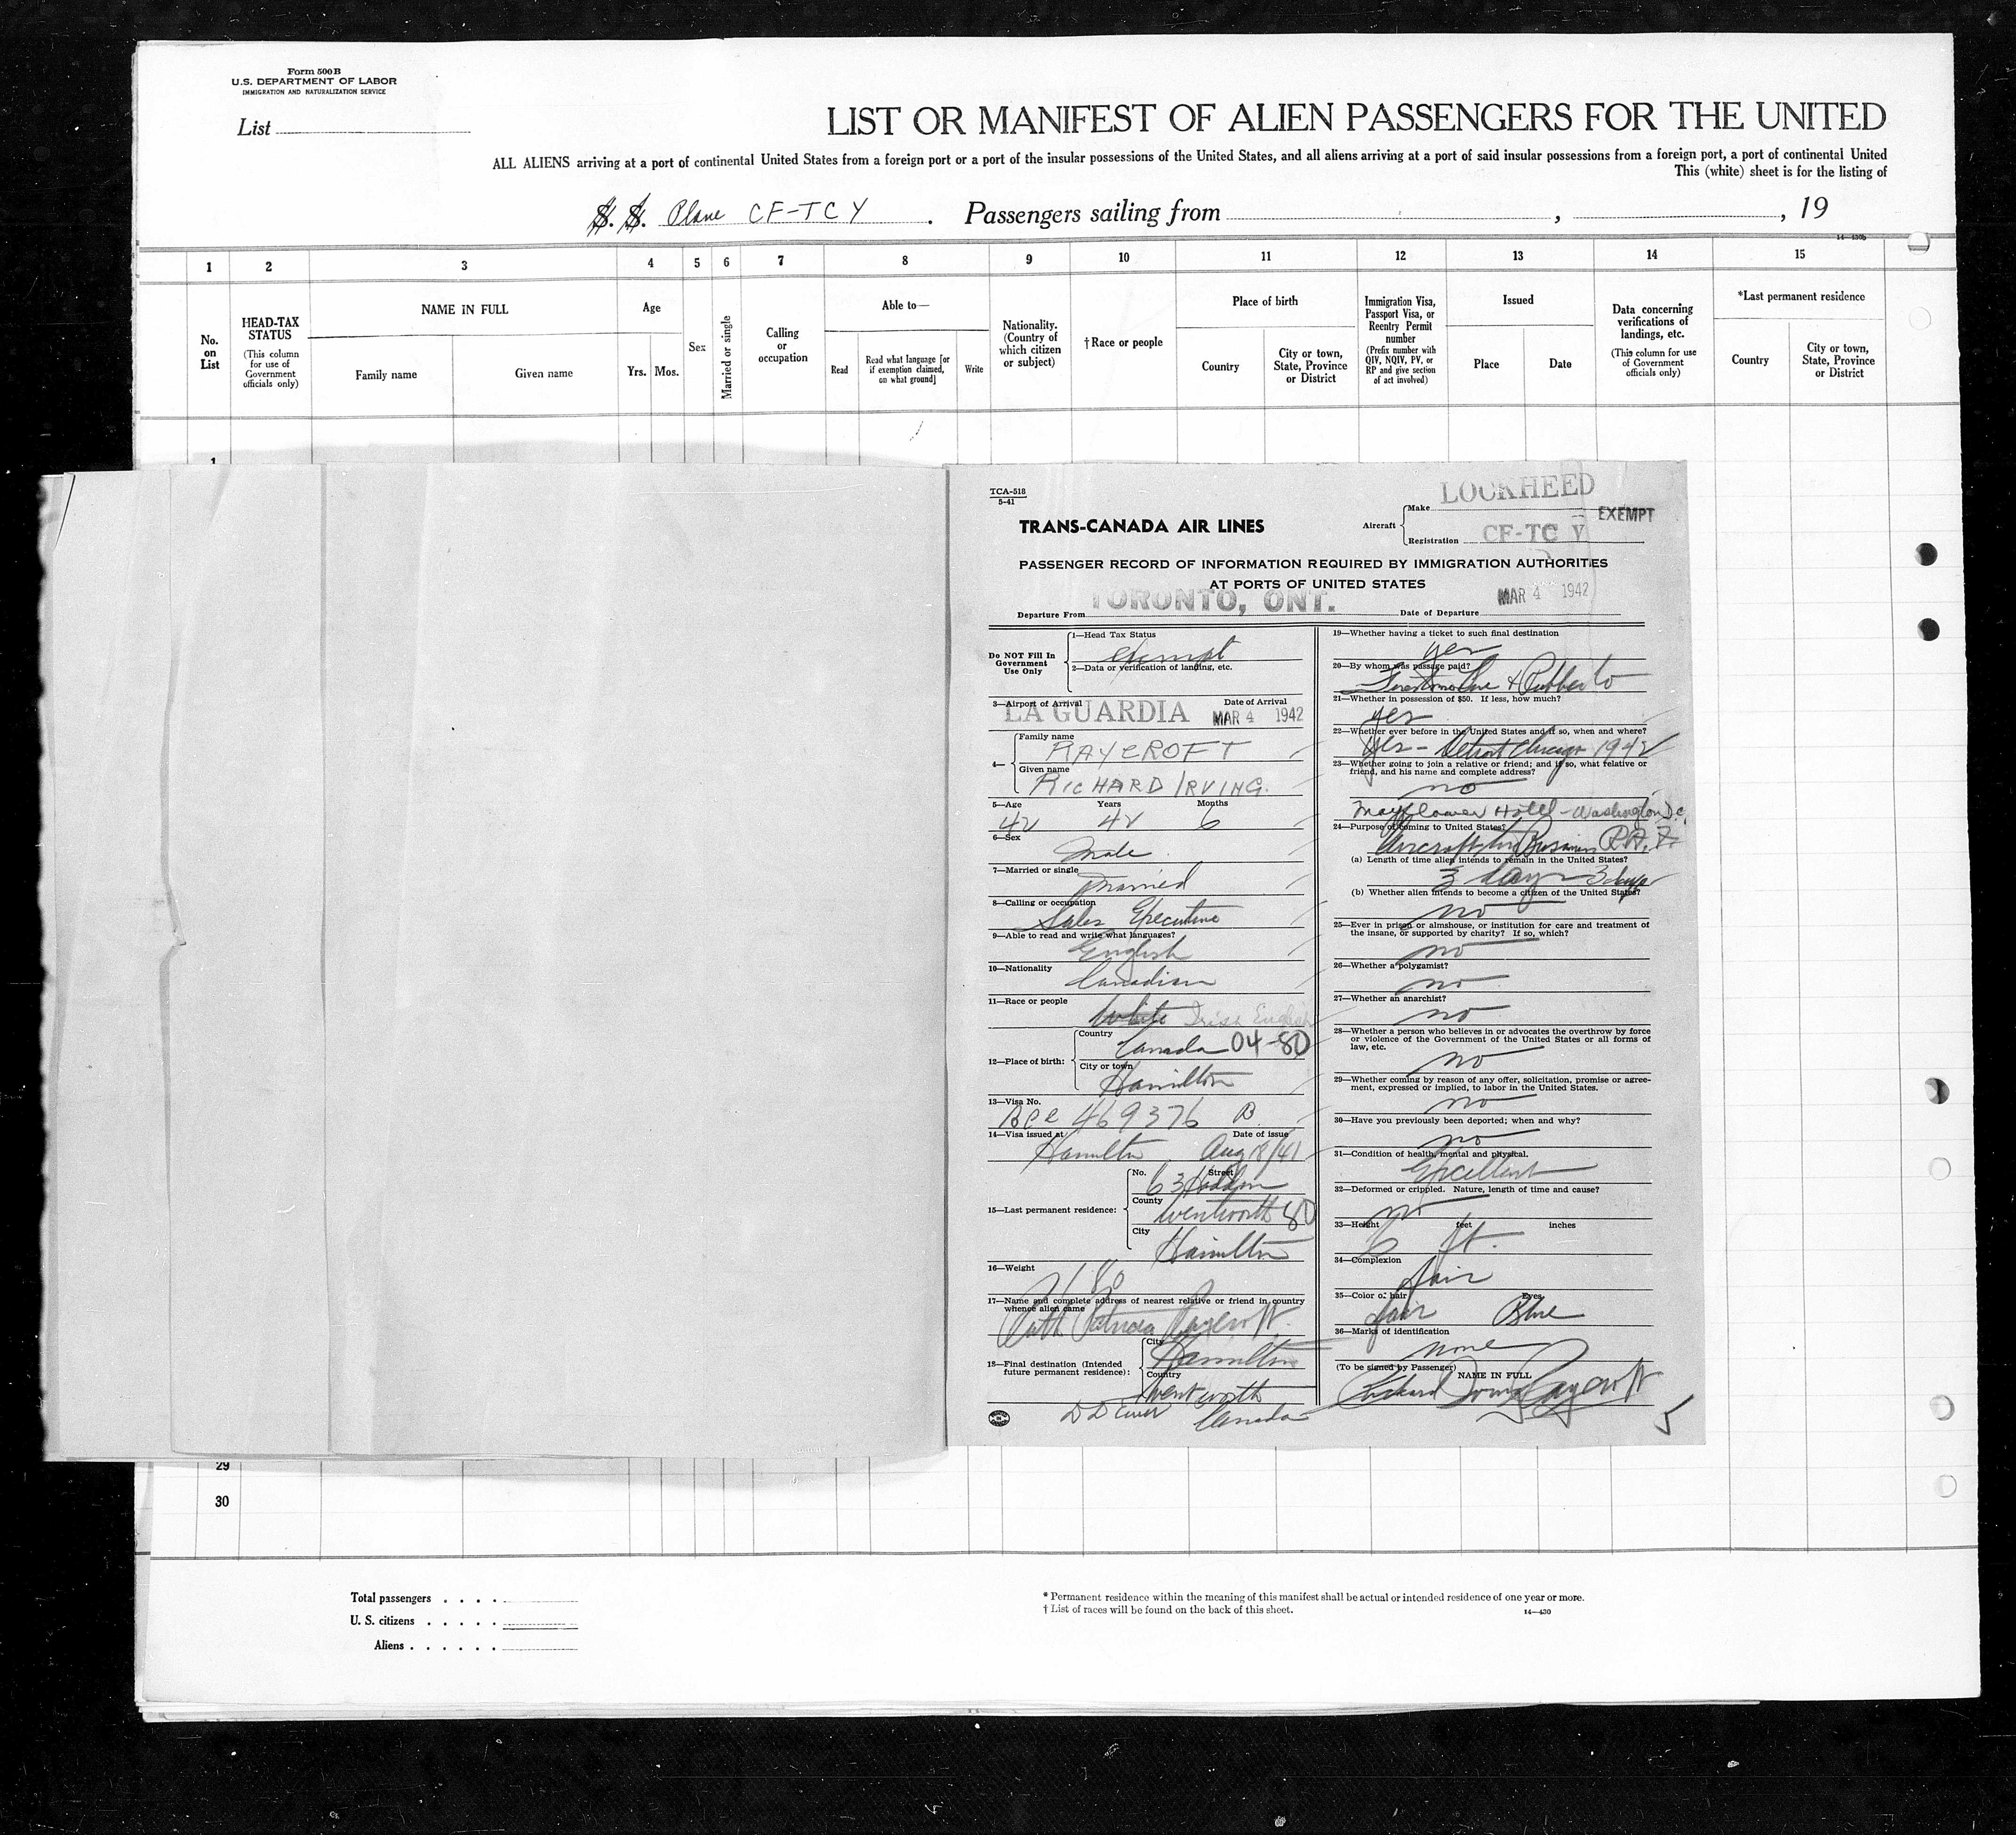 Form 500B
U.S. DEPARTMENT OF LABOR
IMMIGRATION AND NATURALIZATION SERVICE
List
LIST OR MANIFEST OF ALIEN PASSENGERS FOR THE UNITED
ALL ALIENS arriving at a port of continental United States from a foreign port or a port of the insular possessions of the United States, and all aliens arriving at a port of said insular possessions from a foreign port, a port of continental United
This (white) sheet is for the listing of
S. S. Plane CF-TCY. Passengers sailing from , , 19
1 2 3 4 5 6 7 8 9 10 11 12 13 14 15
No. on List
HEAD-TAX STATUS
(This column for use of Government officials only)
NAME IN FULL
Family name
Given name
Age
Yrs. Mos.
Sex
Married or single
Calling or occupation
Able to—
Read
Read what language [or if exemption claimed, on what ground]
Write
Nationality. (Country of which citizen or subject)
†Race or people
Place of birth
Country
City or town, State, Province or District
Immigration Visa, Passport Visa, or Reentry Permit number
(Prefix number with QIV, NQIV, PV, or RP and give section of act involved)
Issued
Place
Date
Data concerning verifications of landings, etc.
(This column for use of Government officials only)
*Last permanent residence
Country
City or town, State, Province or District
1
TCA-518
5-41
TRANS-CANADA AIR LINES
Aircraft
Make LOCKHEED
EXEMPT
Registration CF-TC Y
PASSENGER RECORD OF INFORMATION REQUIRED BY IMMIGRATION AUTHORITIES
AT PORTS OF UNITED STATES
Departure From TORONTO, ONT. Date of Departure MAR 4 1942
Do NOT Fill In Government Use Only
1—Head Tax Status
exempt
2—Data or verification of landing, etc.
3—Airport of Arrival Date of Arrival
LA GUARDIA MAR 4 1942
4—
Family name
RAYCROFT
Given name
RICHARD IRVING.
5—Age Years Months
42 42 6
6—Sex
Male
7—Married or single
Married
8—Calling or occupation
Sales Executive
9—Able to read and write what languages?
English
10—Nationality
Canadian
11—Race or people
White Irish English
12—Place of birth:
Country
Canada 04-80
City or town
Hamilton
13—Visa No.
BCC 469376 B
14—Visa issued at Date of issue
Hamilton Aug 18/41
15—Last permanent residence:
No. Street
63 Haddon
County
Wentworth 80
City
Hamilton
16—Weight
180
17—Name and complete address of nearest relative or friend in country whence alien came
Ruth Patricia Raycroft.
18—Final destination (Intended future permanent residence):
City
Hamilton
Country
Wentworth
Canada
19—Whether having a ticket to such final destination
yes
20—By whom was passage paid?
Firestone Tire & Rubber Co
21—Whether in possession of $50. If less, how much?
yes
22—Whether ever before in the United States and if so, when and where?
Yes - Detroit Chicago 1942
23—Whether going to join a relative or friend; and if so, what relative or friend, and his name and complete address?
no
Mayflower Hotel - Washington D.C.
24—Purpose of coming to United States?
Aircraft Business R.A.F.
(a) Length of time alien intends to remain in the United States?
3 days 3 days
(b) Whether alien intends to become a citizen of the United States?
no
25—Ever in prison or almshouse, or institution for care and treatment of the insane, or supported by charity? If so, which?
no
26—Whether a polygamist?
no
27—Whether an anarchist?
no
28—Whether a person who believes in or advocates the overthrow by force or violence of the Government of the United States or all forms of law, etc.
no
29—Whether coming by reason of any offer, solicitation, promise or agreement, expressed or implied, to labor in the United States.
no
30—Have you previously been deported; when and why?
no
31—Condition of health, mental and physical.
Excellent
32—Deformed or crippled. Nature, length of time and cause?
no
33—Height feet inches
6 ft.
34—Complexion
fair
35—Color of hair Eyes
fair Blue
36—Marks of identification
none
(To be signed by Passenger) NAME IN FULL
Richard Irving Raycroft
5
29
30
Total passengers . . . .
U. S. citizens . . . . .
Aliens . . . . . .
* Permanent residence within the meaning of this manifest shall be actual or intended residence of one year or more.
† List of races will be found on the back of this sheet.
14—430